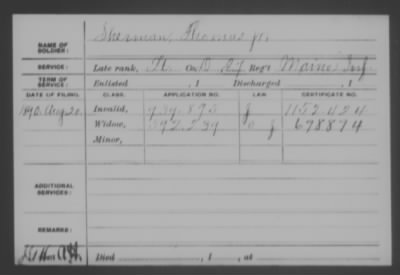 Sherman, Thomas Jr.
NAME OF SOLDIER:
SERVICE: Late rank, Co. D Reg't Maine Inf
TERM OF SERVICE: Enlisted , 1 Discharged , 1
DATE OF FILING. CLASS. APPLICATION NO. LAW. CERTIFICATE NO.
1890. Aug. 20. Invalid, 939.895 J 1152.424
Widow, 892.239 J 678874
Minor,
ADDITIONAL SERVICES:
REMARKS:
Died , 1 , at